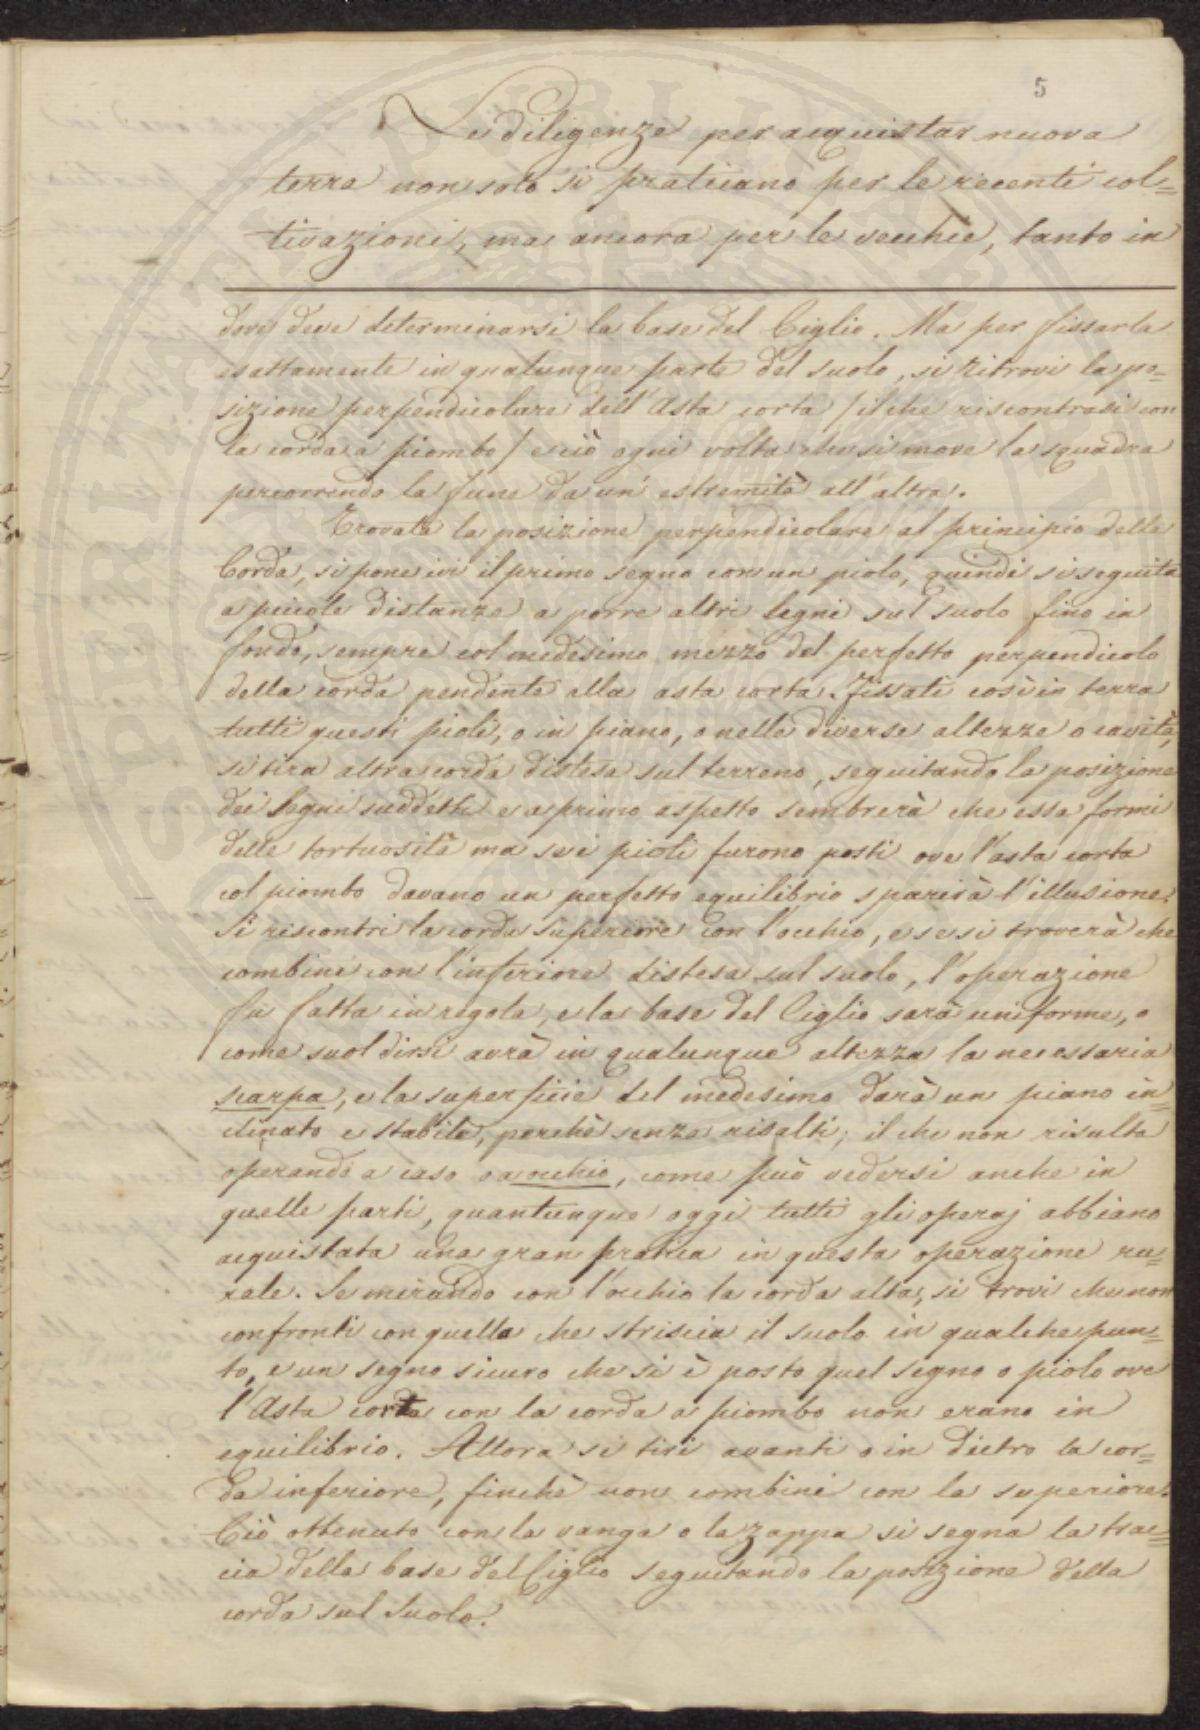 5
Le diligenze per acquistar nuova
terra non solo si praticano per le recenti col=
tivazioni, ma ancora per le vecchie, tanto in
dove deve determinarsi la base del Ciglio. Ma per fissarla
esattamente in qualunque parte del suolo, si ritrovi la po=
sizione perpendicolare dell'Asta corta /il che riscontrasi con
la corda a piombo/ e ciò ogni volta che si move la squadra
percorrendo la fune da un' estremità all'altra.
Trovata la posizione perpendicolare al principio della
Corda, si pone ivi il primo segno con un piolo, quindi si seguita
a piccole distanze a porre altri legni sul suolo fino in
fondo, sempre col medesimo mezzo del perfetto perpendicolo
della corda pendente alla asta corta. Fissati così in terra
tutti questi pioli, o in piano, o nelle diverse altezze o cavità,
si tira altra corda distesa sul terreno, seguitando la posizione
dei legni suddetti e a primo aspetto sembrerà che essa formi
delle tortuosità ma se i pioli furono posti ove l'asta corta
col piombo davano un perfetto equilibrio sparirà l'illusione.
Si riscontri la corda superiore con l'occhio, e se si troverà che
combini con l'inferiore distesa sul suolo, l'operazione
fù fatta in regola, e la base del Ciglio sarà uniforme, o
come suol dirsi avrà in qualunque altezza la necessaria
scarpa, e la superficie del medesimo darà un piano in=
clinato e stabile, perchè senza risalti; il che non risulta
operando a caso o a occhio, come può vedersi anche in
quelle parti, quantunque oggi tutti gli operaj abbiano
acquistata una gran pratica in questa operazione ru=
rale. Se mirando con l'occhio la corda alta, si trovi che non
confronti con quella che striscia il suolo in qualche pun=
to, e un segno sicuro che si è posto quel segno o piolo ove
l'Asta corta con la corda a piombo non erano in
equilibrio. Allora si tiri avanti o in dietro la cor=
da inferiore, finchè non combini con la superiore.
Ciò ottenuto con la vanga o la zappa si segna la trac=
cia della base del Ciglio seguitando la posizione della
corda sul Suolo.